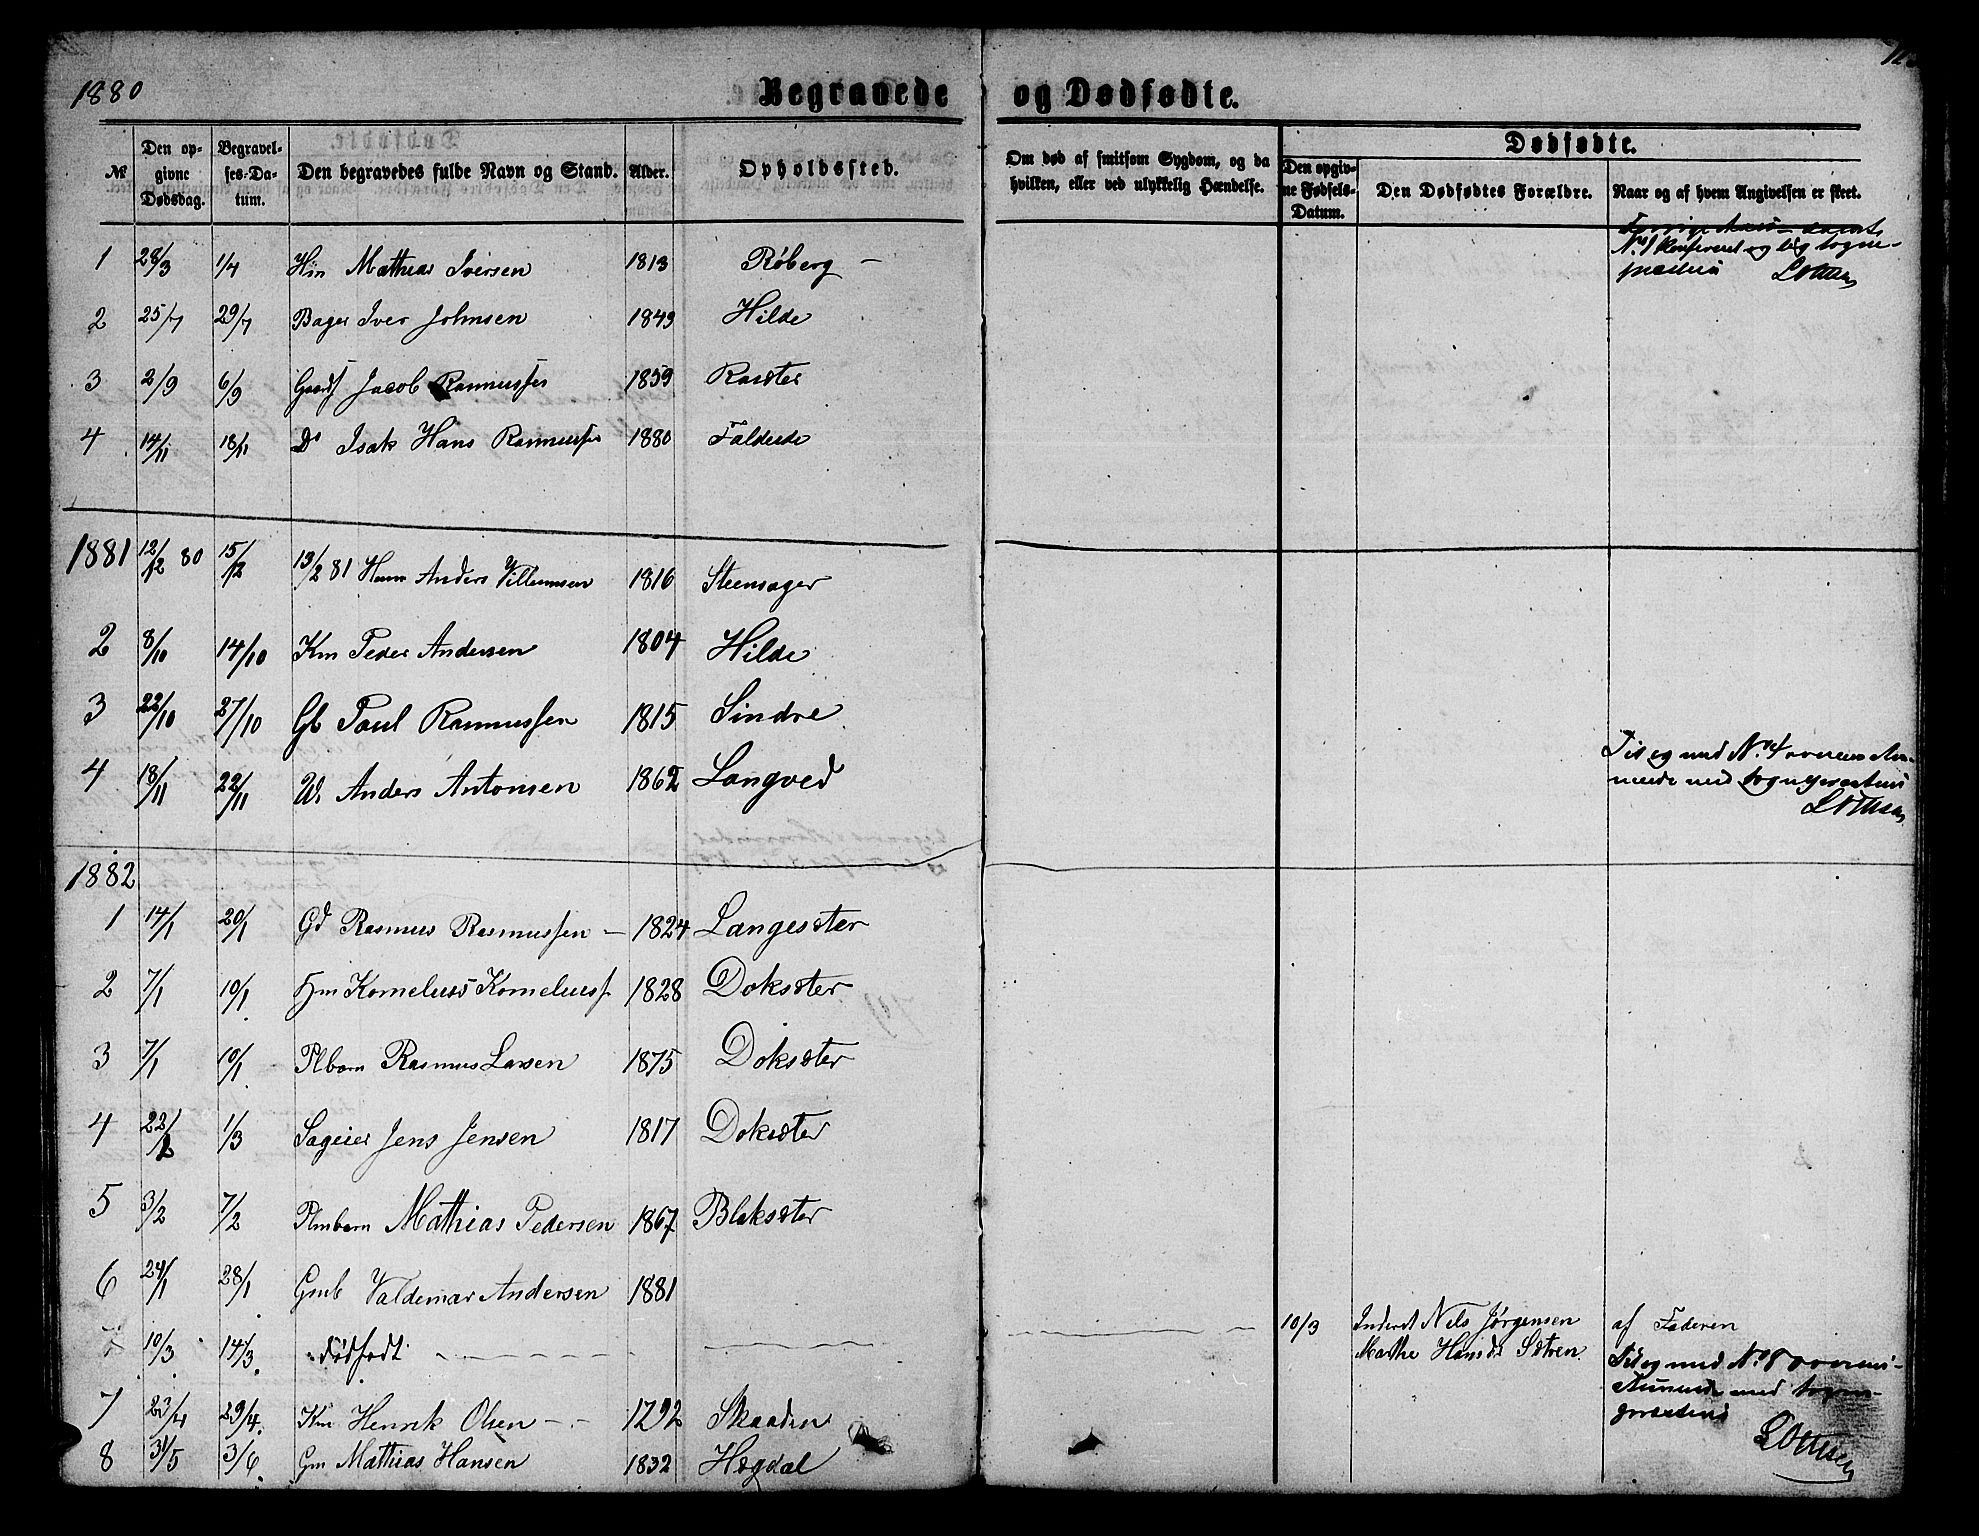 1880 Begravede og Dødfødte.
№ Den opgivne Dødsdag. Begravelses-Datum. Den begravedes fulde Navn og Stand. Alder. Opholdssted. Om død af smitsom Sygdom, og da hvilken, eller ved ulykkelig Hændelse. Dødfødte.
Den opgivne Fødsels-Datum. Den Dødfødtes Forældre. Naar og af hvem Angivelsen er skeet.
1 28/3 1/4 Hm Mathias Iversen 1813 Røberg –
No 1 konfereret og lig sogne-
2 25/7 29/7 Bager Iver Johnsen 1849 Hilde
3 2/9 6/9 Gaards Jacob Rasmussen 1859
4 14/11 18/11 Do Isak Hans Rasmussen 1880 Faldeide
1881 12/12 80 15/12 13/2 81 Huum Anders Villumsen 1816 Steensager
2 8/10 14/10 Km Peder Andersen 1804 Hilde
3 22/10 27/10 Gb Paul Rasmussen 1815 Sindre
4 18/11 22/11 U. Anders Antonsen 1862 Langved
Til og med No 4 overens-
med sognepræstens
1882
1 14/1 20/1 Gd Rasmus Rasmussen – 1824 Langesæter
2 7/1 10/1 Hm Kornelius Korneliusf 1828 Doksæter
3 7/1 10/1 Plbarn Rasmus Larsen 1875 Doksæter
4 22/2 1/3 Jens Jensen 1817 Doksæter
5 3/2 7/2 Plmbarn Mathias Pedersen 1867 Blaksæter
6 24/1 28/1 Gmb Valdemar Andersen 1881
7 10/3 14/3 dødfødt 10/3 Inderst Nils Jørgensen af Faderen
Marthe Hansd Sætren.
Til og med No 8 overens-
stemmende med sogne-
præstens
7 23/4 29/4. Km Henrik Olsen – - 1792 Skaaden
8 31/5 3/6. Gm Mathias Hansen 1832 Hogdal